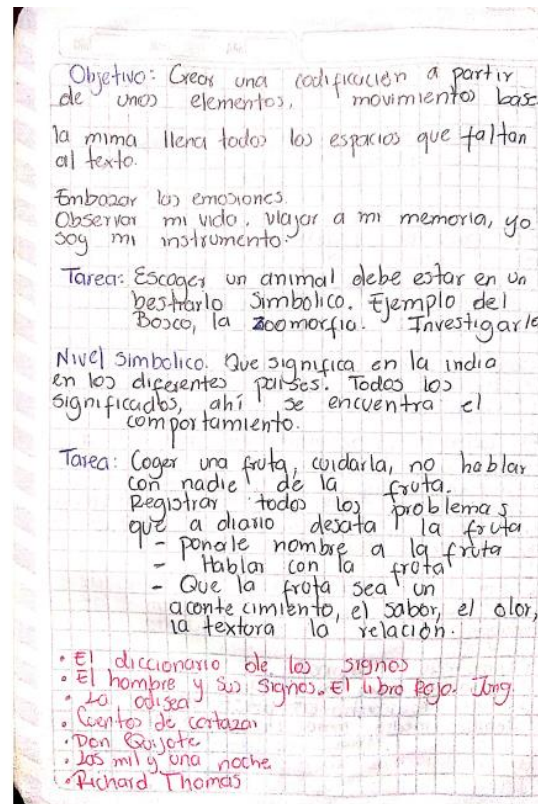 Objetivo: Crear una codificación a partir
de unos elementos, movimientos base
la mima llena todos los espacios que faltan
al texto.
Embozar las emosiones.
Observar mi vida, viajar a mi memoria, yo
soy mi instrumento.
Tarea: Escoger un animal debe estar en un
bestiario simbolico. Ejemplo del
Bosco, la zoomorfia. Investigarlo
Nivel simbolico. Que significa en la india
en los diferentes paises. Todos los
significados, ahí se encuentra el
comportamiento.
Tarea: Coger una fruta, cuidarla, no hablar
con nadie de la fruta.
Registrar todos los problemas
que a diario desata la fruta
- ponerle nombre a la fruta
- Hablar con la fruta
- Que la fruta sea un
acontecimiento, el sabor, el olor,
la textura la relación.
• El diccionario de los signos
• El hombre y sus signos. El libro Rojo. Jung
• La odisea
• Cuentos de cortazar
• Don Quijote
• Las mil y una noche
• Richard Thomas